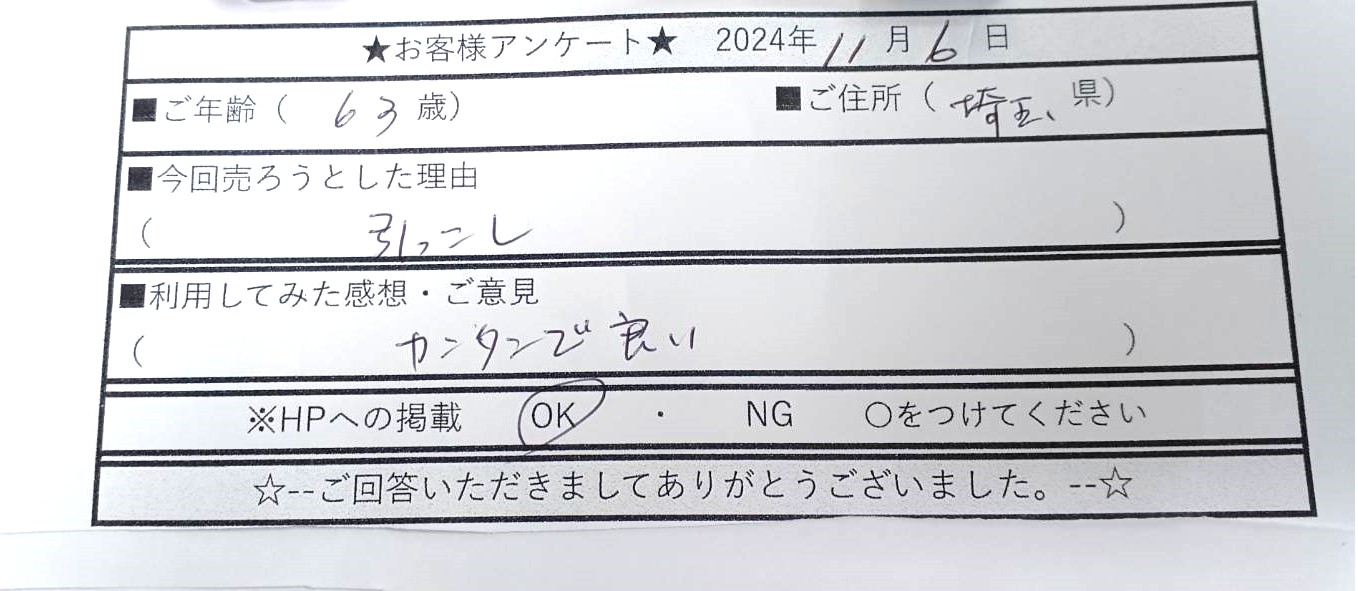 ★お客様アンケート★ 2024年 11月 6日
■ご年齢( 63歳) ■ご住所( 埼玉 県)
■今回売ろうとした理由
( 引っこし )
■利用してみた感想・ご意見
( カンタンで良い )
※HPへの掲載 OK ・ NG ○をつけてください
☆--ご回答いただきましてありがとうございました。--☆